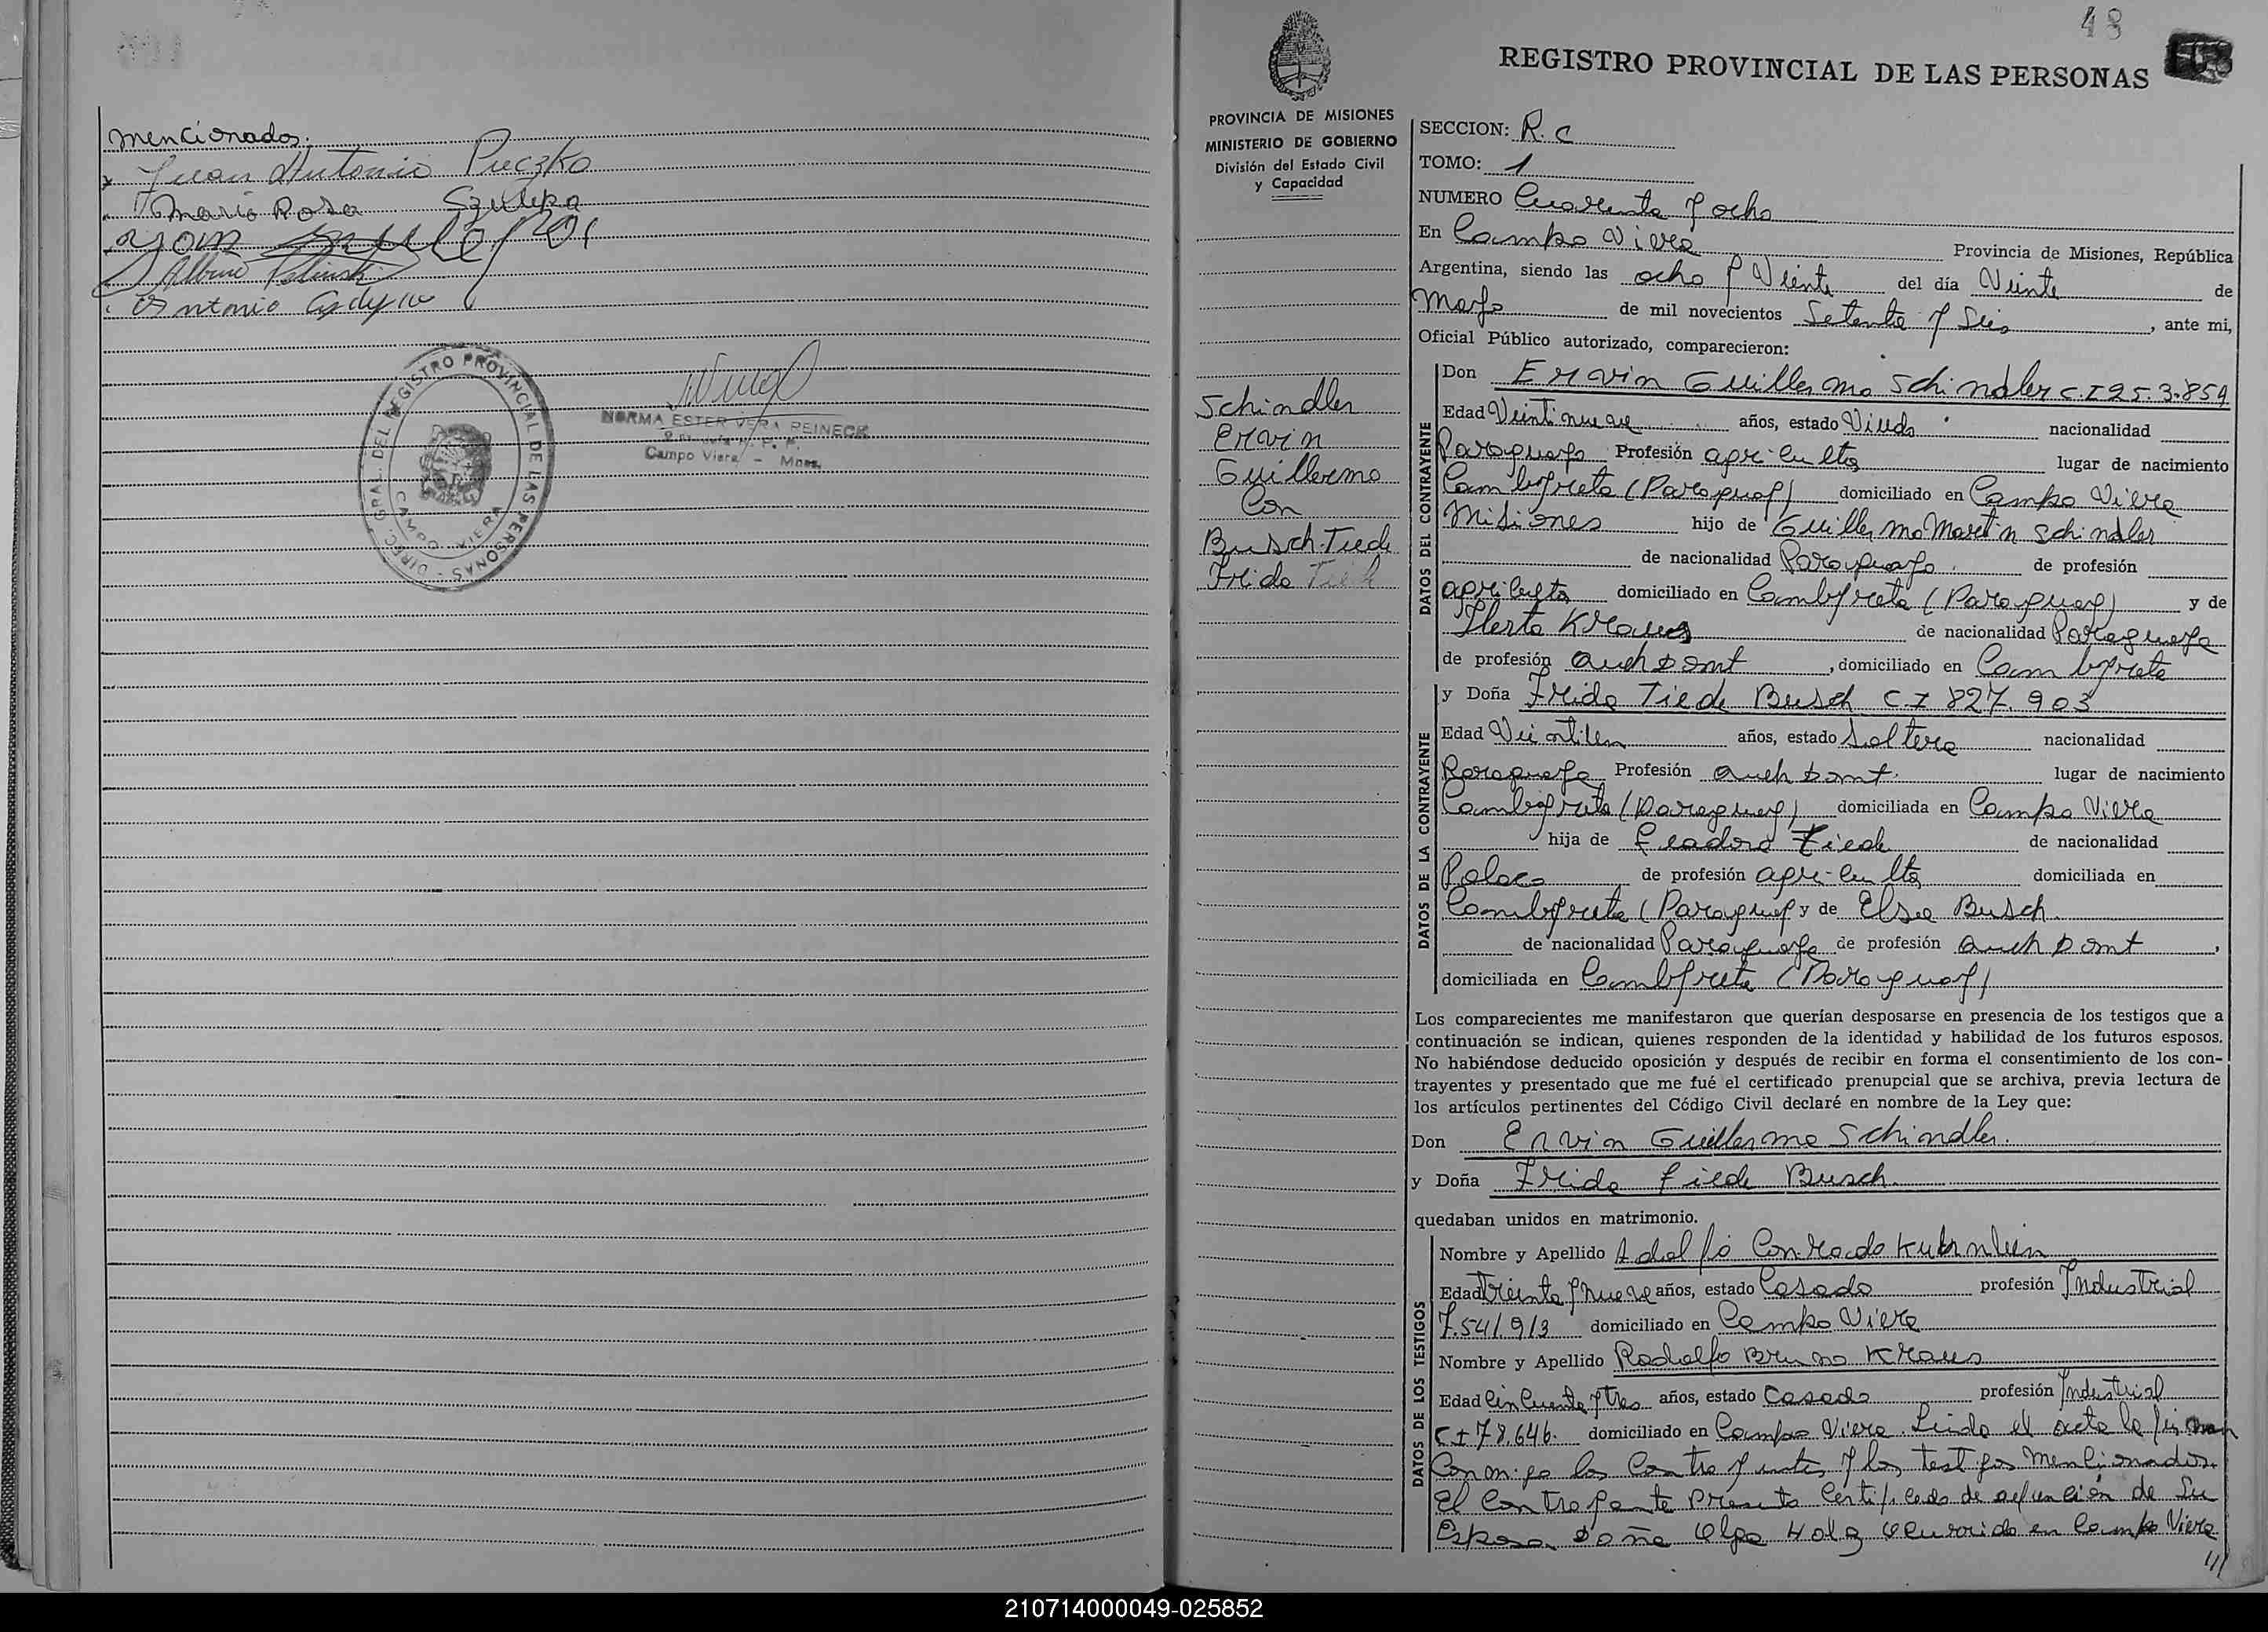 mencionados.
Juan Antonio Puczko
Maria Rosa Szulepa
Antonio
DIREC. GRAL. DEL REGISTRO PROVINCIAL DE LAS PERSONAS -
CAMPO VIERA
NORMA ESTER VERA REINECK
Campo Viera - Mnes.
48
REGISTRO PROVINCIAL DE LAS PERSONAS
PROVINCIA DE MISIONES
MINISTERIO DE GOBIERNO
División del Estado Civil
y Capacidad
Schindler
Ervin
Guillermo
Con
Busch Tiede
Frida Tiede
SECCION: R. C
TOMO: 1
NUMERO Cuarenta y ocho
En Campo Viera Provincia de Misiones, República
Argentina, siendo las ocho y Veinte del día Veinte de
Mayo de mil novecientos Setenta y Seis, ante mi,
Oficial Público autorizado, comparecieron:
DATOS DEL CONTRAYENTE
Don Ervin Guillermo Schindler C.I 25.3.859
Edad Veintinueve años, estado Viudo nacionalidad
Paraguayo Profesión agriculto lugar de nacimiento
Cambyreta (Paraguay) domiciliado en Campo Viera
Misiones hijo de Guillermo Martin Schindler
de nacionalidad Paraguayo de profesión
agriculto domiciliado en Cambyreta (Paraguay) y de
Herta Kraus de nacionalidad Paraguaya
de profesión queh Domt, domiciliado en Cambyreta
DATOS DE LA CONTRAYENTE
y Doña Frida Tiede Busch C.I 827.903
Edad Veintiun años, estado Soltera nacionalidad
Paraguaya Profesión queh Domt. lugar de nacimiento
Cambyreta (Paraguay) domiciliada en Campo Viera
hija de Tiede de nacionalidad
Polaco de profesión agriculto domiciliada en
Cambyreta (Paraguay y de Elsa Busch.
de nacionalidad Paraguaya de profesión queh Domt,
domiciliada en Cambyreta (Paraguay)
Los comparecientes me manifestaron que querían desposarse en presencia de los testigos que a
continuación se indican, quienes responden de la identidad y habilidad de los futuros esposos.
No habiéndose deducido oposición y después de recibir en forma el consentimiento de los con-
trayentes y presentado que me fué el certificado prenupcial que se archiva, previa lectura de
los artículos pertinentes del Código Civil declaré en nombre de la Ley que:
Don Ervin Guillermo Schindler.
y Doña Frida Tiede Busch.
quedaban unidos en matrimonio.
DATOS DE LOS TESTIGOS
Nombre y Apellido Adolfo Conrado Kuhnlein
Edad Treinta y nueve años, estado Casado profesión Industrial
7.541.913 domiciliado en Campo Viera
Nombre y Apellido Rodolfo Bruno Kraus
Edad Cincuenta y tres años, estado Casado profesión Industrial
C I 78.646. domiciliado en Campo Viera. Leida el acta la firman
Conmigo los Contrayentes y los testigos mencionados.
El Contrayente Presento Certificado de defunción de Su
Esposa Doña Olga Holz Ocurrido en Campo Viera
///
210714000049-025852